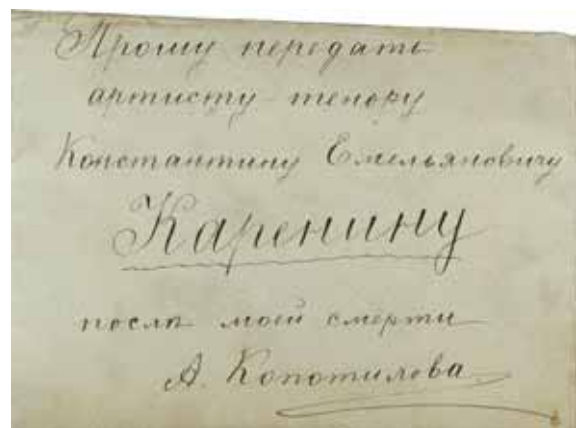 Прошу передать
артисту-тенору
Константину Емельяновичу
Каренину
послѣ моей смерти
А. Копотилова